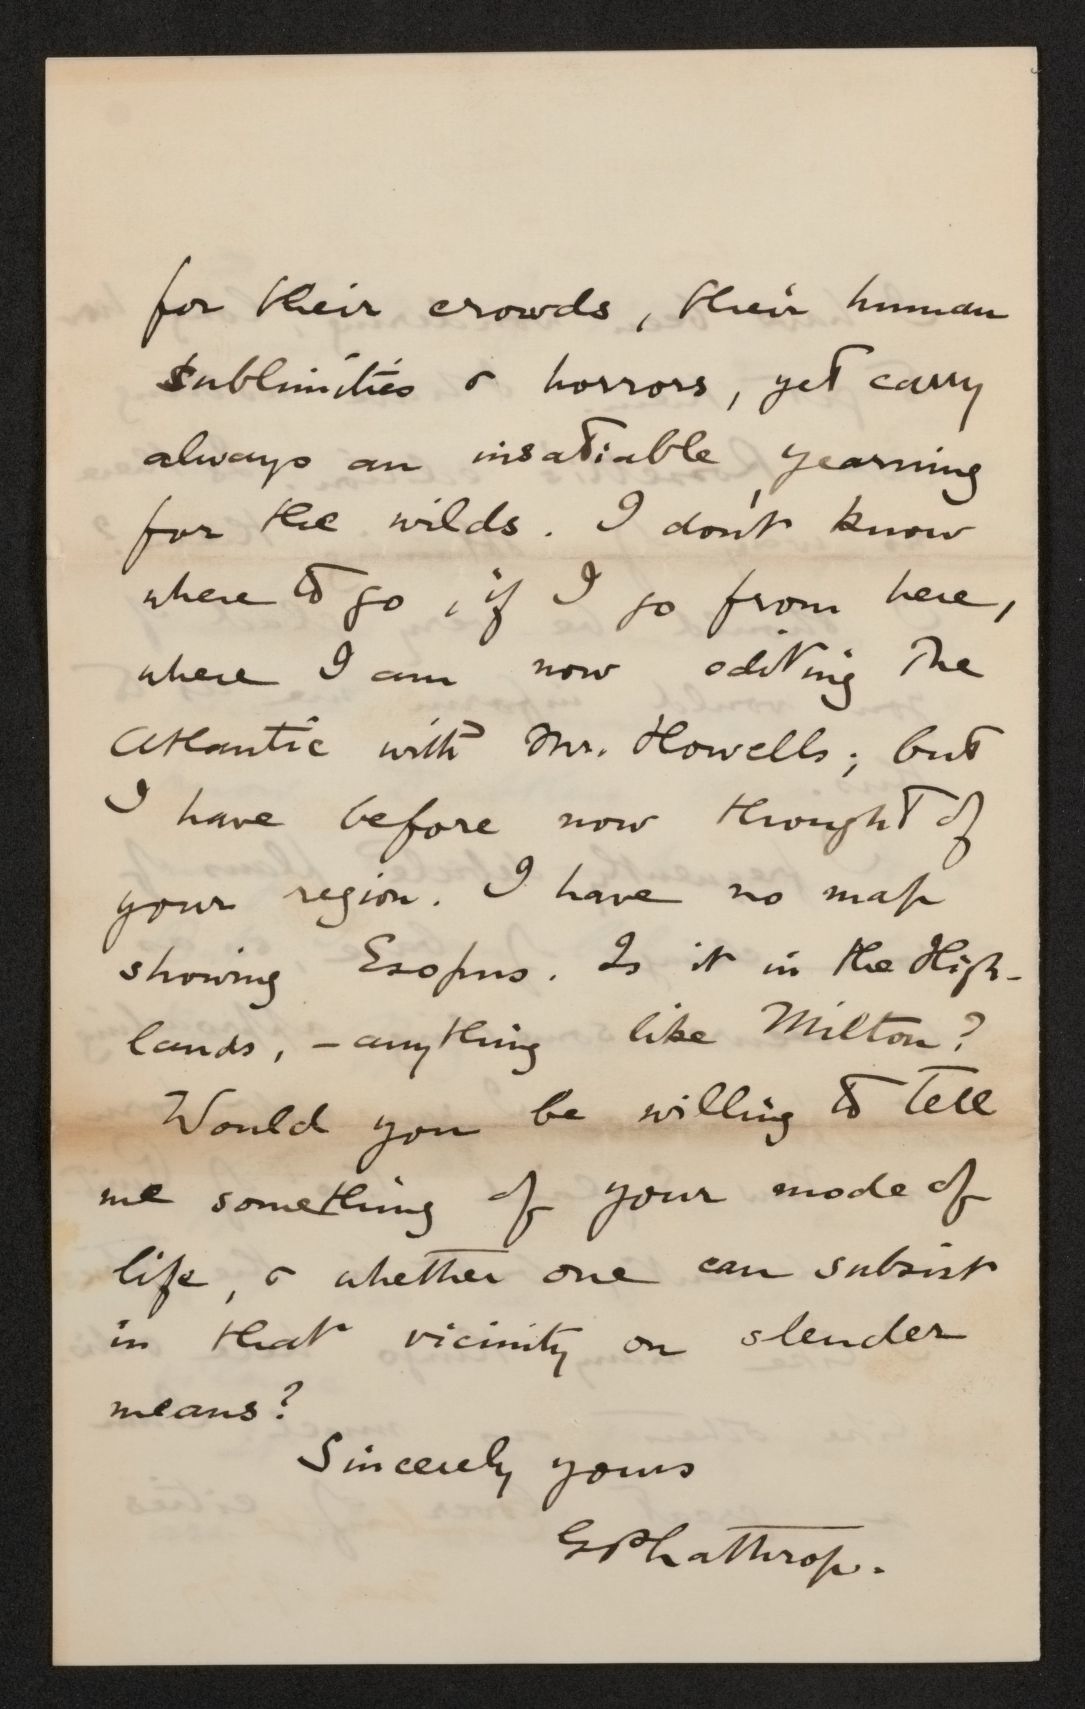 for their crowds, their human
sublimities & horrors, yet carry
always an insatiable yearning
for the wilds. I don't know
where to go, if I go from here,
where I am now editing the
Atlantic with Mr. Howells; but
I have before now thought of
your region. I have no map
showing Esopus. Is it in the High-
lands, - anything like Milton?
Would you be willing to tell
me something of your mode of
life, & whether one can subsist
in that vicinity on slender
means?
Sincerely yours
G P Lathrop.